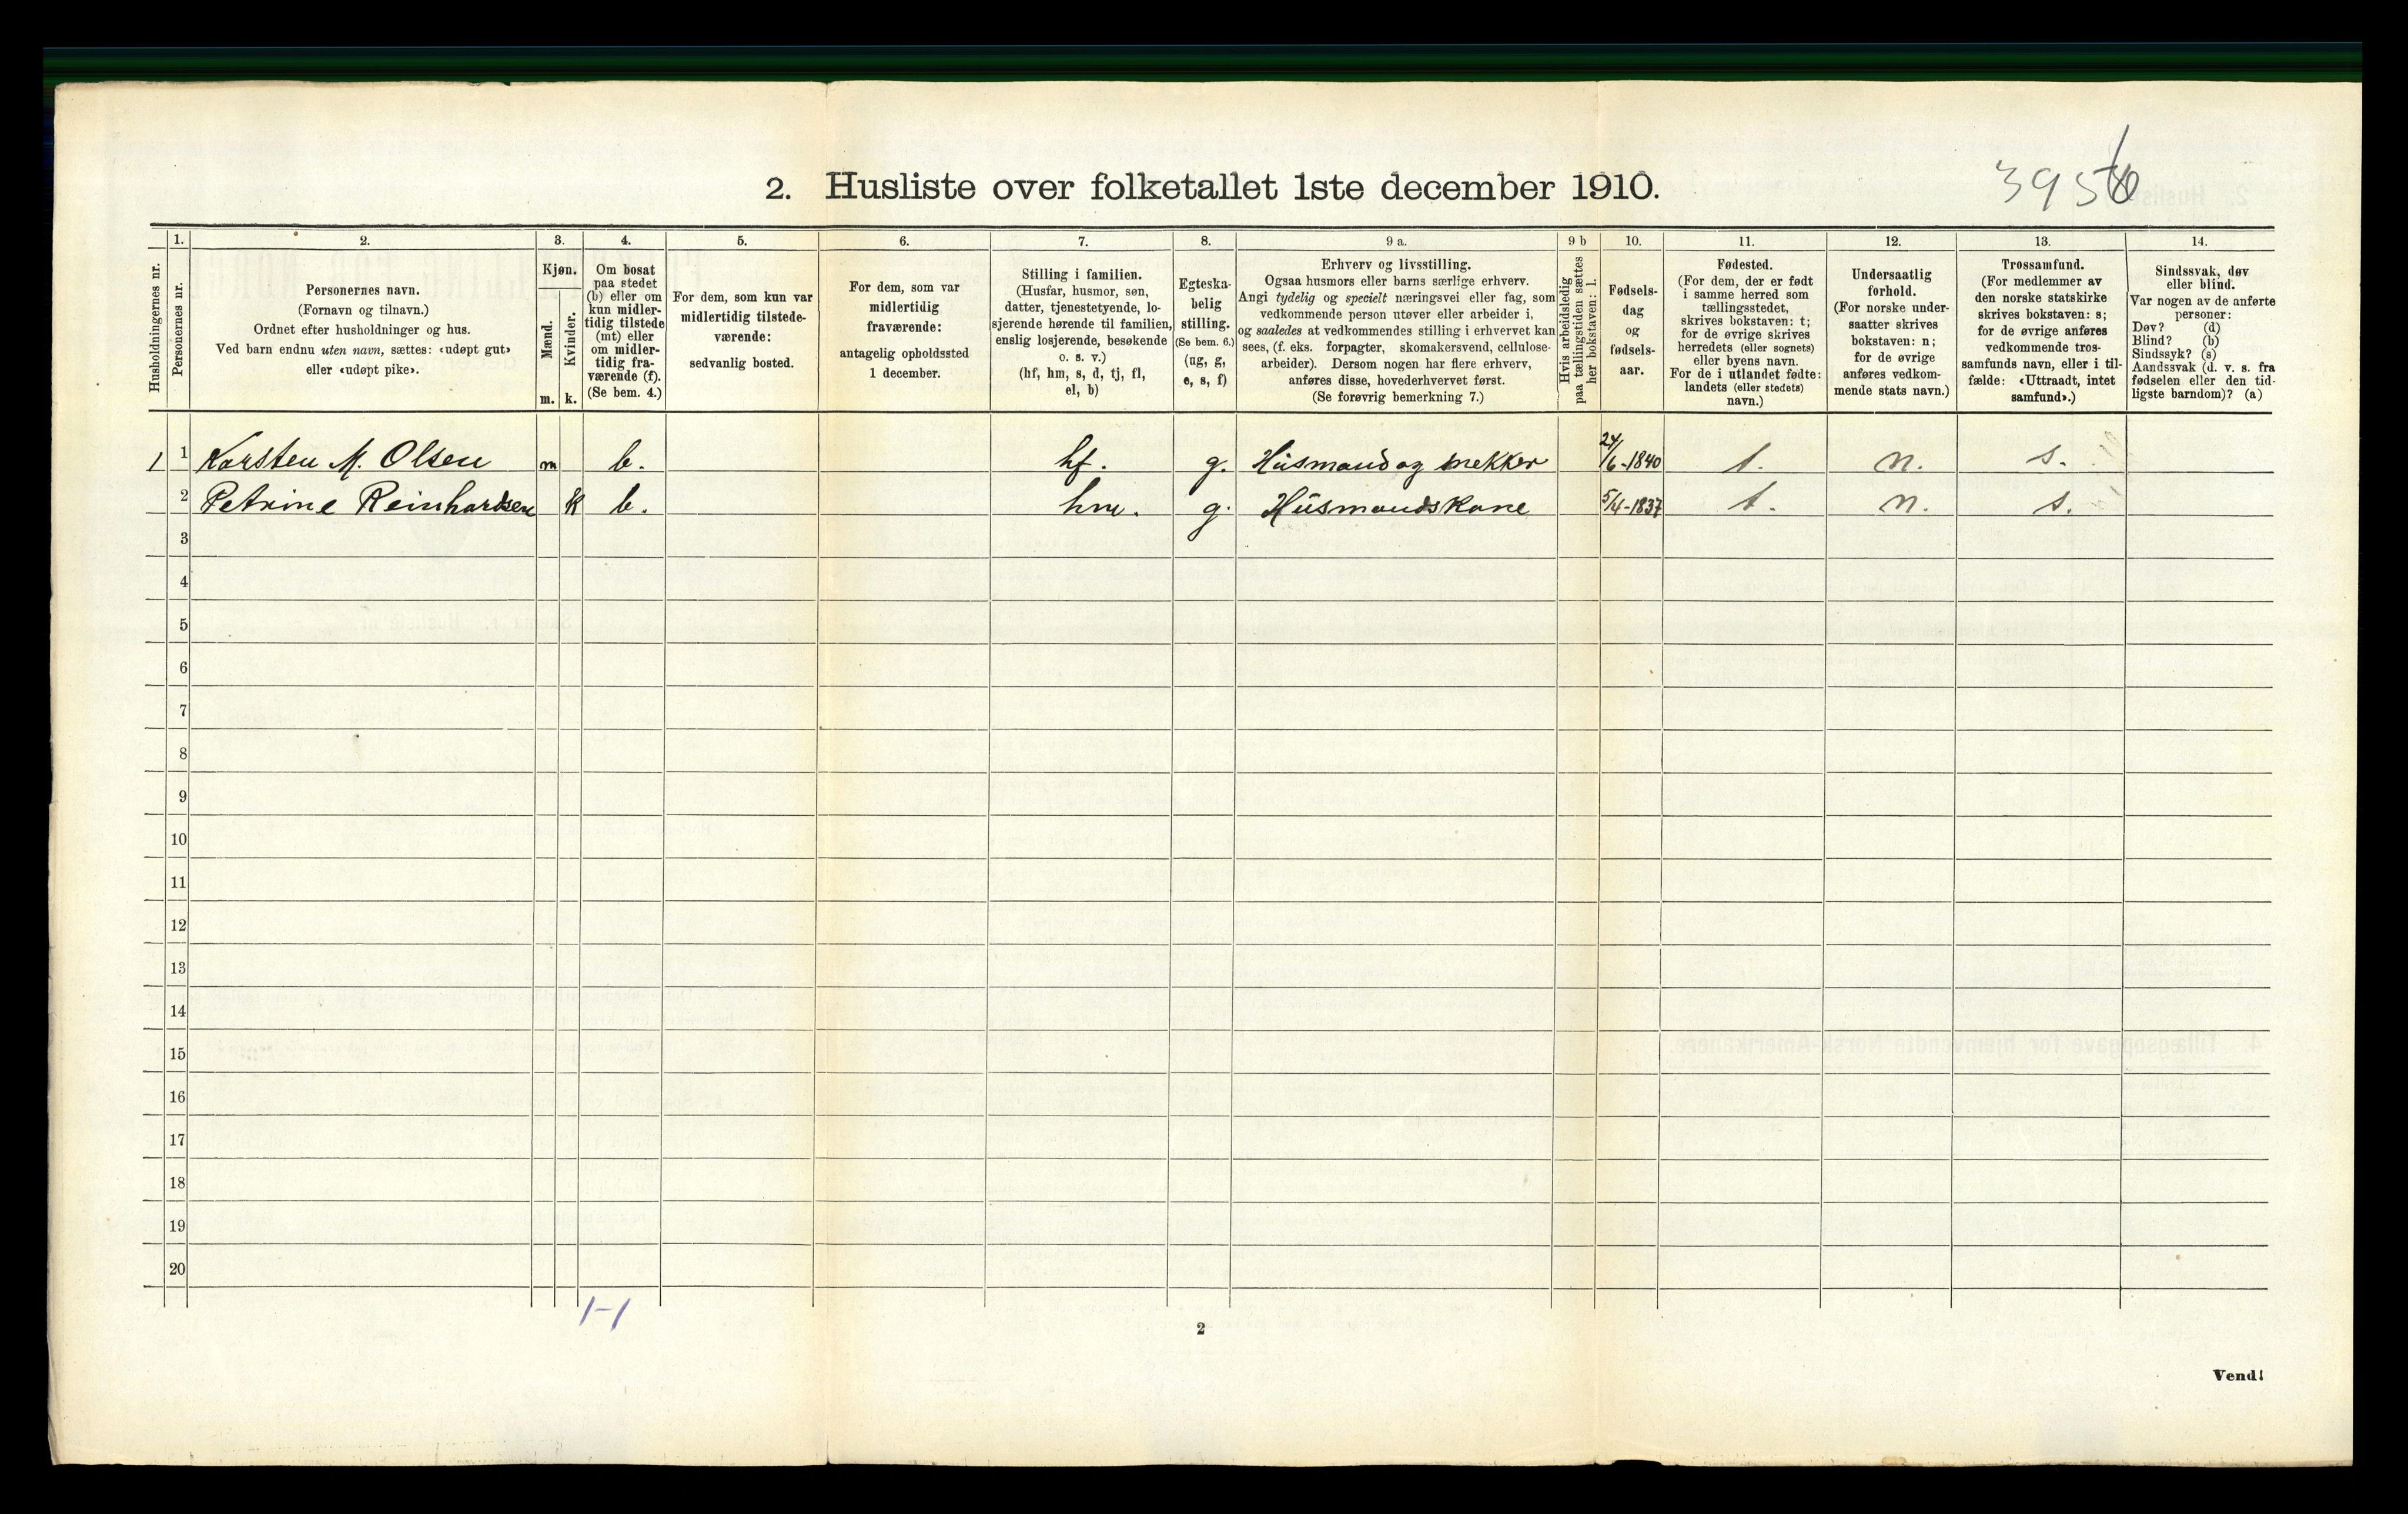 2. Husliste over folketallet 1ste december 1910.
Husholdningernes nr.
1.
Personernes nr.
2.
Personernes navn.
(Fornavn og tilnavn.)
Ordnet efter husholdninger og hus.
Ved barn endnu uten navn, sættes: «udøpt gut»
eller «udøpt pike».
3.
Kjøn.
Mænd.
Kvinder.
m. k.
4.
Om bosat
paa stedet
(b) eller om
kun midler-
tidig tilstede
(mt) eller
om midler-
tidig fra-
værende (f).
(Se bem. 4.)
5.
For dem, som kun var
midlertidig tilstede-
værende:
sedvanlig bosted.
6.
For dem, som var
midlertidig
fraværende:
antagelig opholdssted
1 december.
7.
Stilling i familien.
(Husfar, husmor, søn,
datter, tjenestetyende, lo-
sjerende hørende til familien,
enslig losjerende, besøkende
o. s. v.)
(hf, hm, s, d, tj, fl,
el, b)
8.
Egteska-
belig
stilling.
(Se bem. 6.)
(ug, g,
e, s, f)
9 a.
Erhverv og livsstilling.
Ogsaa husmors eller barns særlige erhverv.
Angi tydelig og specielt næringsvei eller fag, som
vedkommende person utøver eller arbeider i,
og saaledes at vedkommendes stilling i erhvervet kan
sees, (f. eks. forpagter, skomakersvend, cellulose-
arbeider). Dersom nogen har flere erhverv,
anføres disse, hovederhvervet først.
(Se forøvrig bemerkning 7.)
9 b
Hvis arbeidsledig
paa tællingstiden sættes
her bokstaven: l.
10.
Fødsels-
dag
og
fødsels-
aar.
11.
Fødested.
(For dem, der er født
i samme herred som
tællingsstedet,
skrives bokstaven: t;
for de øvrige skrives
herredets (eller sognets)
eller byens navn.
For de i utlandet fødte:
landets (eller stedets)
navn.)
12.
Undersaatlig
forhold.
(For norske under-
saatter skrives
bokstaven: n;
for de øvrige
anføres vedkom-
mende stats navn.)
13.
Trossamfund.
(For medlemmer av
den norske statskirke
skrives bokstaven: s;
for de øvrige anføres
vedkommende tros-
samfunds navn, eller i til-
fælde: «Uttraadt, intet
samfund».)
14.
Sindssvak, døv
eller blind.
Var nogen av de anførte
personer:
Døv? (d)
Blind? (b)
Sindssyk? (s)
Aandssvak (d. v. s. fra
fødselen eller den tid-
ligste barndom)? (a)
1 1 Karsten M. Olsen m b. hf. g. Husmand og snekker 24/6-1840 t. n. s.
2 Petrine Reinhardsen k b. hm. g. Husmandskone 5/4-1837 t. n. s.
3
4
5
6
7
8
9
10
11
12
13
14
15
16
17
18
19
20
1-1
2
Vend!